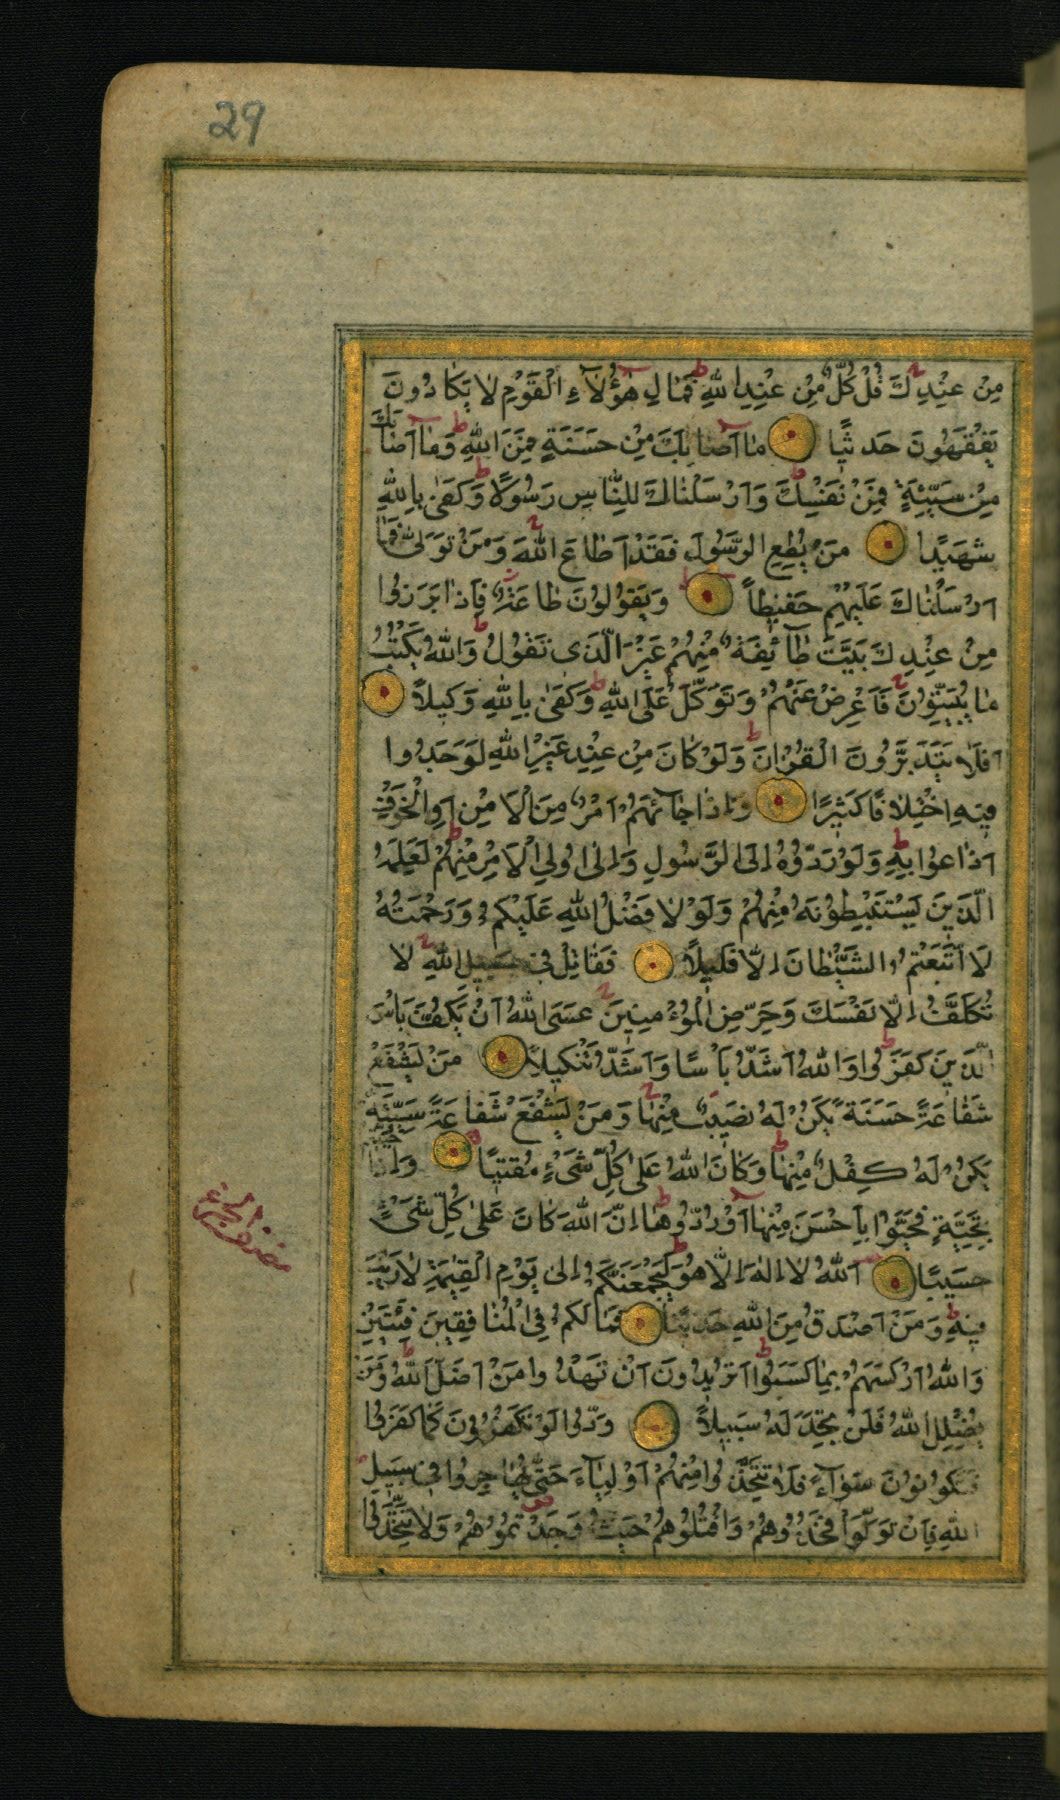 29
مِنْ عِنْدِكَ قُلْ كُلٌّ مِنْ عِنْدِ اللهِ فَمَالِ هٰؤُلَآءِ الْقَوْمِ لَا يَكَادُونَ
يَفْقَهُونَ حَدِيثًا مَا اَصَابَكَ مِنْ حَسَنَةٍ فَمِنَ اللهِ وَمَا اَصَابَكَ
مِنْ سَيِّئَةٍ فَمِنْ نَفْسِكَ وَاَرْسَلْنَاكَ لِلنَّاسِ رَسُولًا وَكَفٰى بِاللهِ
شَهِيدًا مَنْ يُطِعِ الرَّسُولَ فَقَدْ اَطَاعَ اللهَ وَمَنْ تَوَلّٰى فَمَا
اَرْسَلْنَاكَ عَلَيْهِمْ حَفِيظًا وَيَقُولُونَ طَاعَةٌ فَاِذَا بَرَزُوا
مِنْ عِنْدِكَ بَيَّتَ طَآئِفَةٌ مِنْهُمْ غَيْرَ الَّذِى تَقُولُ وَاللهُ يَكْتُبُ
مَا يُبَيِّتُونَ فَاَعْرِضْ عَنْهُمْ وَتَوَكَّلْ عَلَى اللهِ وَكَفٰى بِاللهِ وَكِيلًا
اَفَلَا يَتَدَبَّرُونَ الْقُرْاٰنَ وَلَوْ كَانَ مِنْ عِنْدِ غَيْرِ اللهِ لَوَجَدُوا
فِيهِ اخْتِلَافًا كَثِيرًا وَاِذَا جَآءَهُمْ اَمْرٌ مِنَ الْاَمْنِ اَوِ الْخَوْفِ
اَذَاعُوا بِهِ وَلَوْ رَدُّوهُ اِلَى الرَّسُولِ وَاِلٰى اُولِى الْاَمْرِ مِنْهُمْ لَعَلِمَهُ
الَّذِينَ يَسْتَنْبِطُونَهُ مِنْهُمْ وَلَوْلَا فَضْلُ اللهِ عَلَيْكُمْ وَرَحْمَتُهُ
لَاتَّبَعْتُمُ الشَّيْطَانَ اِلَّا قَلِيلًا فَقَاتِلْ فِى سَبِيلِ اللهِ لَا
تُكَلَّفُ اِلَّا نَفْسَكَ وَحَرِّضِ الْمُؤْمِنِينَ عَسَى اللهُ اَنْ يَكُفَّ بَاْسَ
الَّذِينَ كَفَرُوا وَاللهُ اَشَدُّ بَاْسًا وَاَشَدُّ تَنْكِيلًا مَنْ يَشْفَعْ
شَفَاعَةً حَسَنَةً يَكُنْ لَهُ نَصِيبٌ مِنْهَا وَمَنْ يَشْفَعْ شَفَاعَةً سَيِّئَةً
يَكُنْ لَهُ كِفْلٌ مِنْهَا وَكَانَ اللهُ عَلٰى كُلِّ شَىْءٍ مُقِيتًا وَاِذَا حُيِّيتُمْ
بِتَحِيَّةٍ فَحَيُّوا بِاَحْسَنَ مِنْهَا اَوْ رُدُّوهَا اِنَّ اللهَ كَانَ عَلٰى كُلِّ شَىْءٍ
حَسِيبًا اَللهُ لَا اِلٰهَ اِلَّا هُوَ لَيَجْمَعَنَّكُمْ اِلٰى يَوْمِ الْقِيٰمَةِ لَا رَيْبَ
فِيهِ وَمَنْ اَصْدَقُ مِنَ اللهِ حَدِيثًا فَمَا لَكُمْ فِى الْمُنَافِقِينَ فِئَتَيْنِ
وَاللهُ اَرْكَسَهُمْ بِمَا كَسَبُوا اَتُرِيدُونَ اَنْ تَهْدُوا مَنْ اَضَلَّ اللهُ وَمَنْ
يُضْلِلِ اللهُ فَلَنْ تَجِدَ لَهُ سَبِيلًا وَدُّوا لَوْ تَكْفُرُونَ كَمَا كَفَرُوا
فَتَكُونُونَ سَوَآءً فَلَا تَتَّخِذُوا مِنْهُمْ اَوْلِيَآءَ حَتّٰى يُهَاجِرُوا فِى سَبِيلِ
اللهِ فَاِنْ تَوَلَّوْا فَخُذُوهُمْ وَاقْتُلُوهُمْ حَيْثُ وَجَدْتُمُوهُمْ وَلَا تَتَّخِذُوا
نصف الجزء